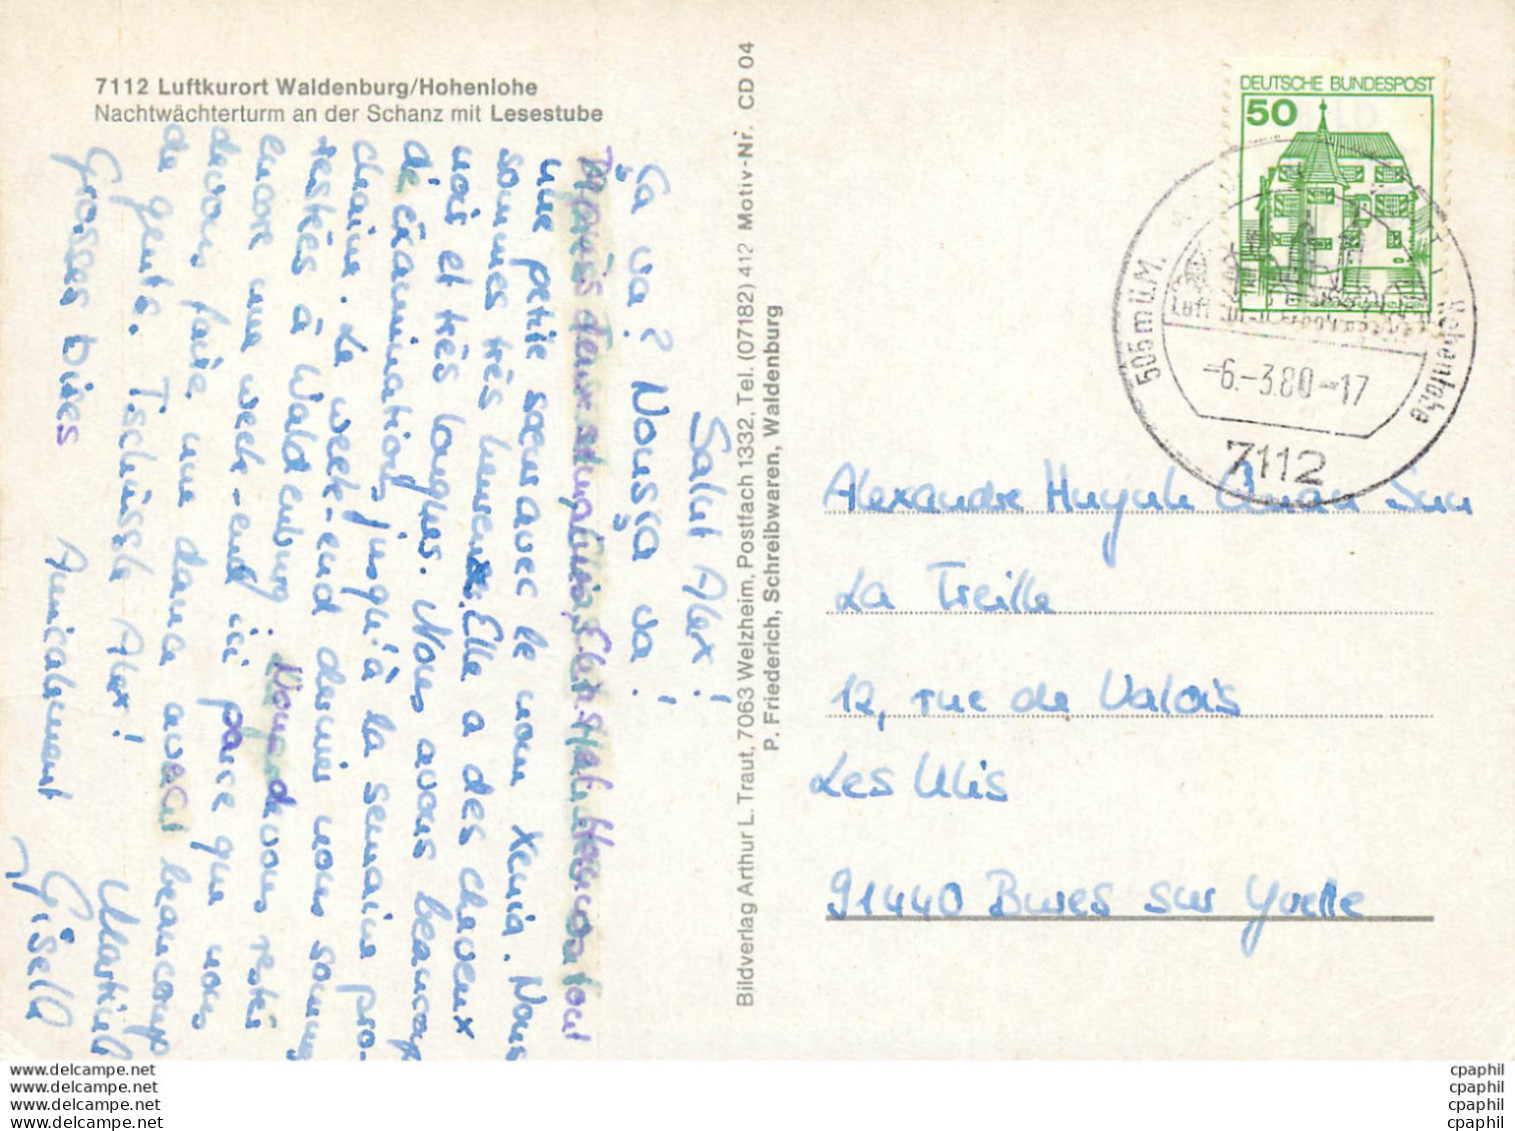 7112 Luftkurort Waldenburg/Hohenlohe
Nachtwächterturm an der Schanz mit Lesestube
Salut Alex!
Ça va? Nous ça va!
une petite sœur avec le nom Xenia. Nous
sommes très heureux. Elle a des cheveux
noirs et très longues. Nous avons beaucoup
de examinations jusqu'à la semaine pro-
chaine. Le week-end dernier nous sommes
restées à Waldenburg. Nous devons rester
encore une week-end ici parce que nous
devons faire une dance avec beaucoup
de gents. Tschüssle Alex!
Grosses bises Amicalement
Gisella
Bildverlag Arthur L. Traut, 7063 Welzheim, Postfach 1332, Tel. (07182) 412 Motiv-Nr. CD 04
P. Friederich, Schreibwaren, Waldenburg
DEUTSCHE BUNDESPOST
50
505 m ü. M.
Hohenlohe
-6.-3.80-17
7112
Alexandre
La Treille
12, rue de Valois
Les Ulis
91440 Bures sur Yvette
www.delcampe.net
www.delcampe.net
www.delcampe.net
www.delcampe.net
cpaphil
cpaphil
cpaphil
cpaphil